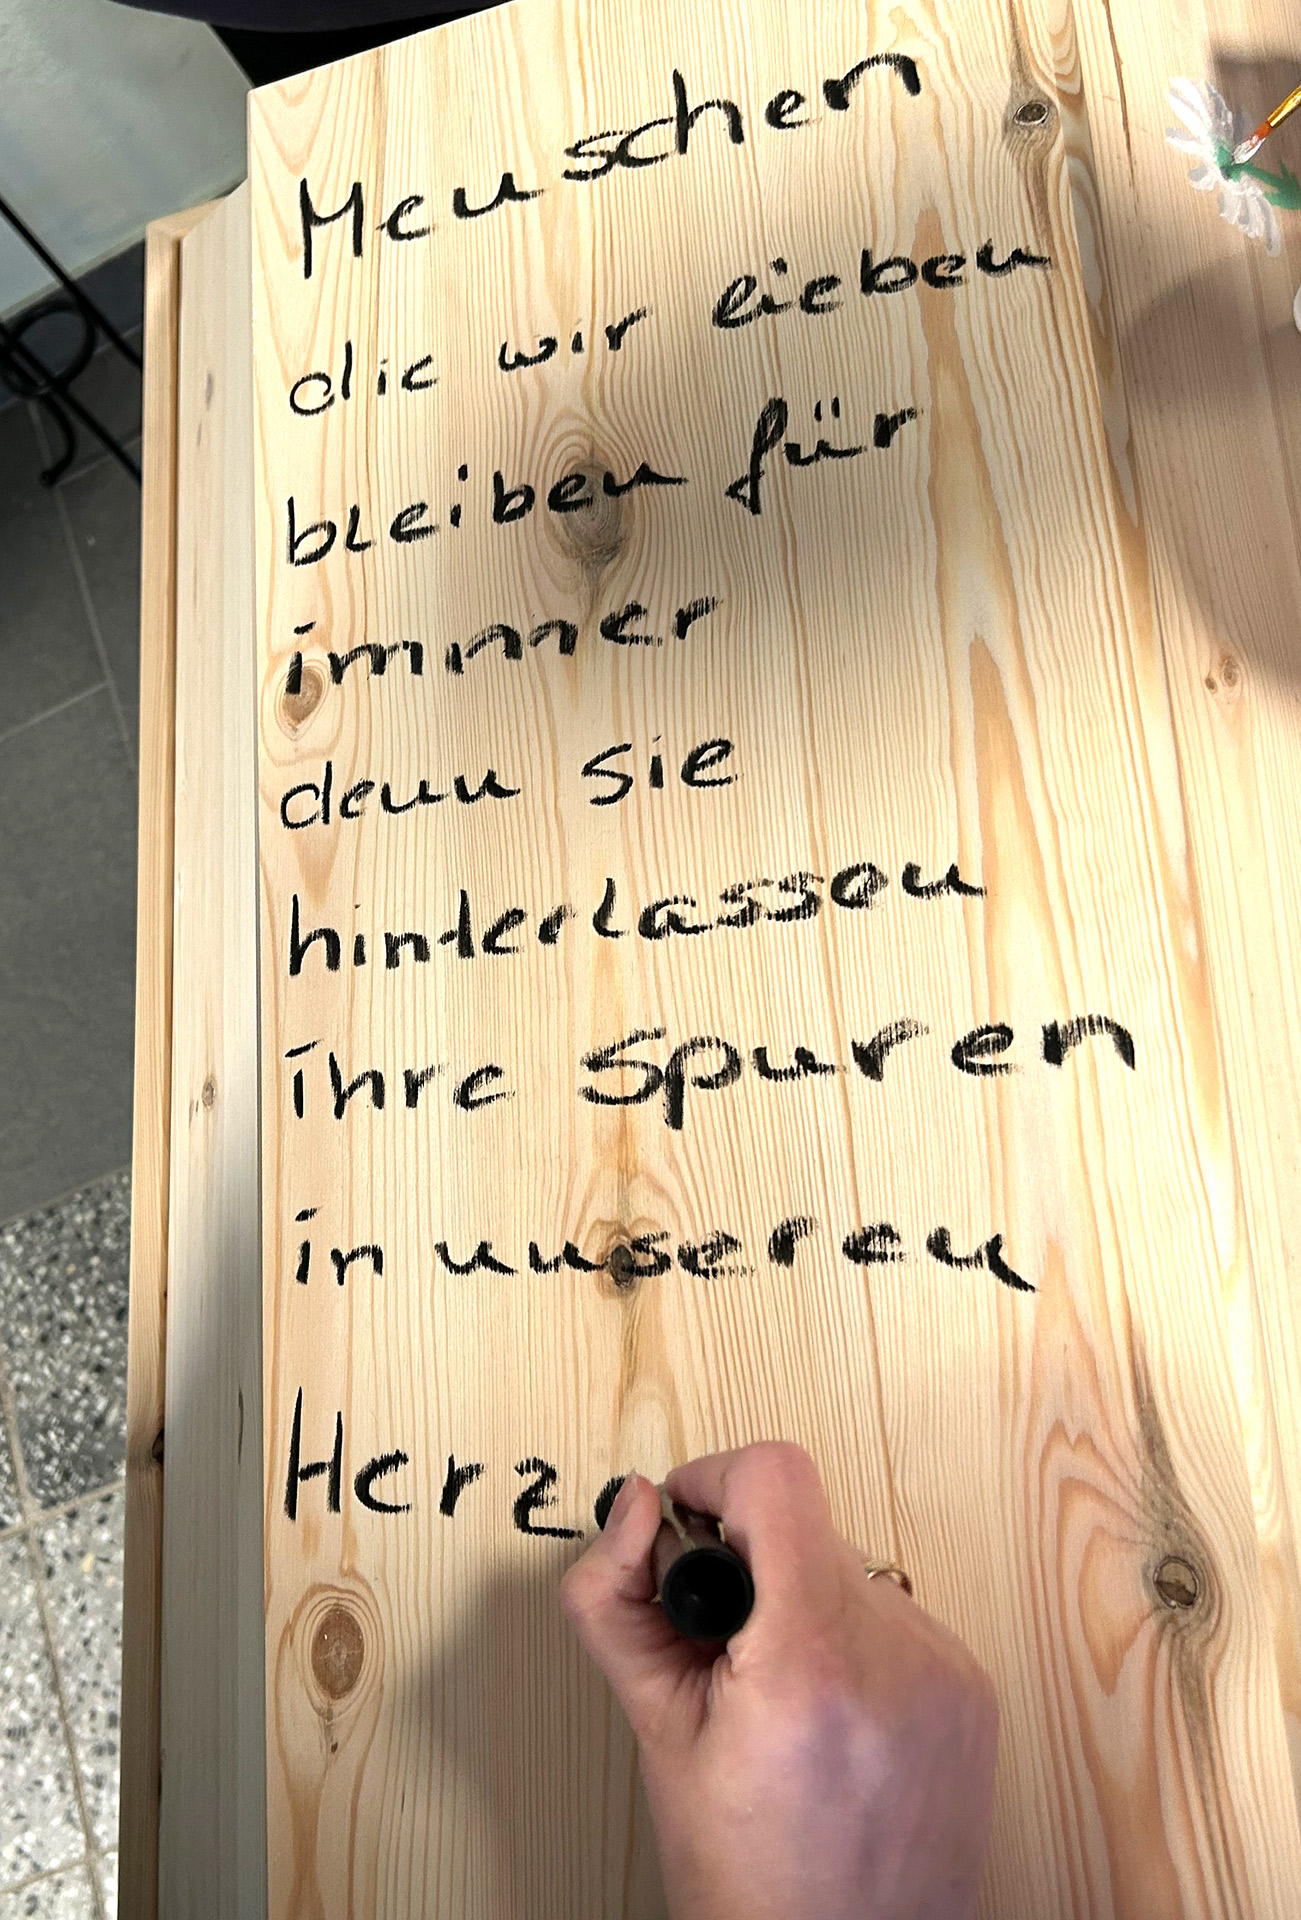 Menschen
die wir lieben
bleiben für
immer
denn sie
hinterlassen
ihre Spuren
in unseren
Herze